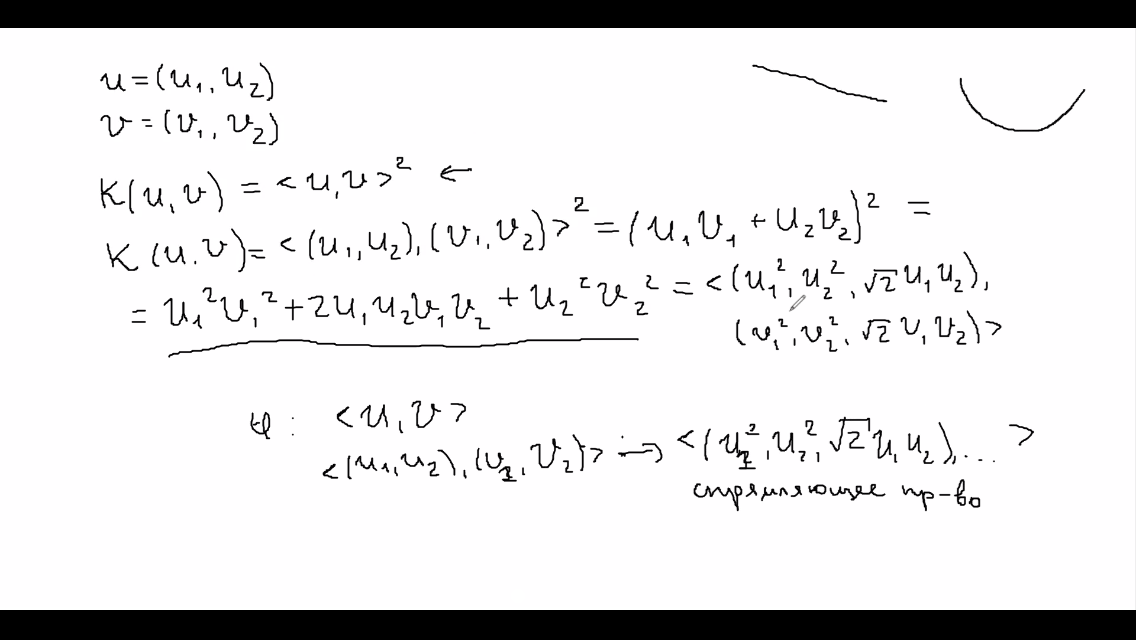 u = (u₁, u₂)
v = (v₁, v₂)
K(u, v) = <u, v>² ←
K(u, v) = <(u₁, u₂), (v₁, v₂)>² = (u₁v₁ + u₂v₂)² =
= u₁²v₁² + 2u₁u₂v₁v₂ + u₂²v₂² = <(u₁², u₂², √2 u₁u₂),
(v₁², v₂², √2 v₁v₂)>
φ : <u, v>
<(u₁, u₂), (v₁, v₂)> ⟼ <(u₁², u₂², √2 u₁u₂), ... >
спрямляющее пр-во